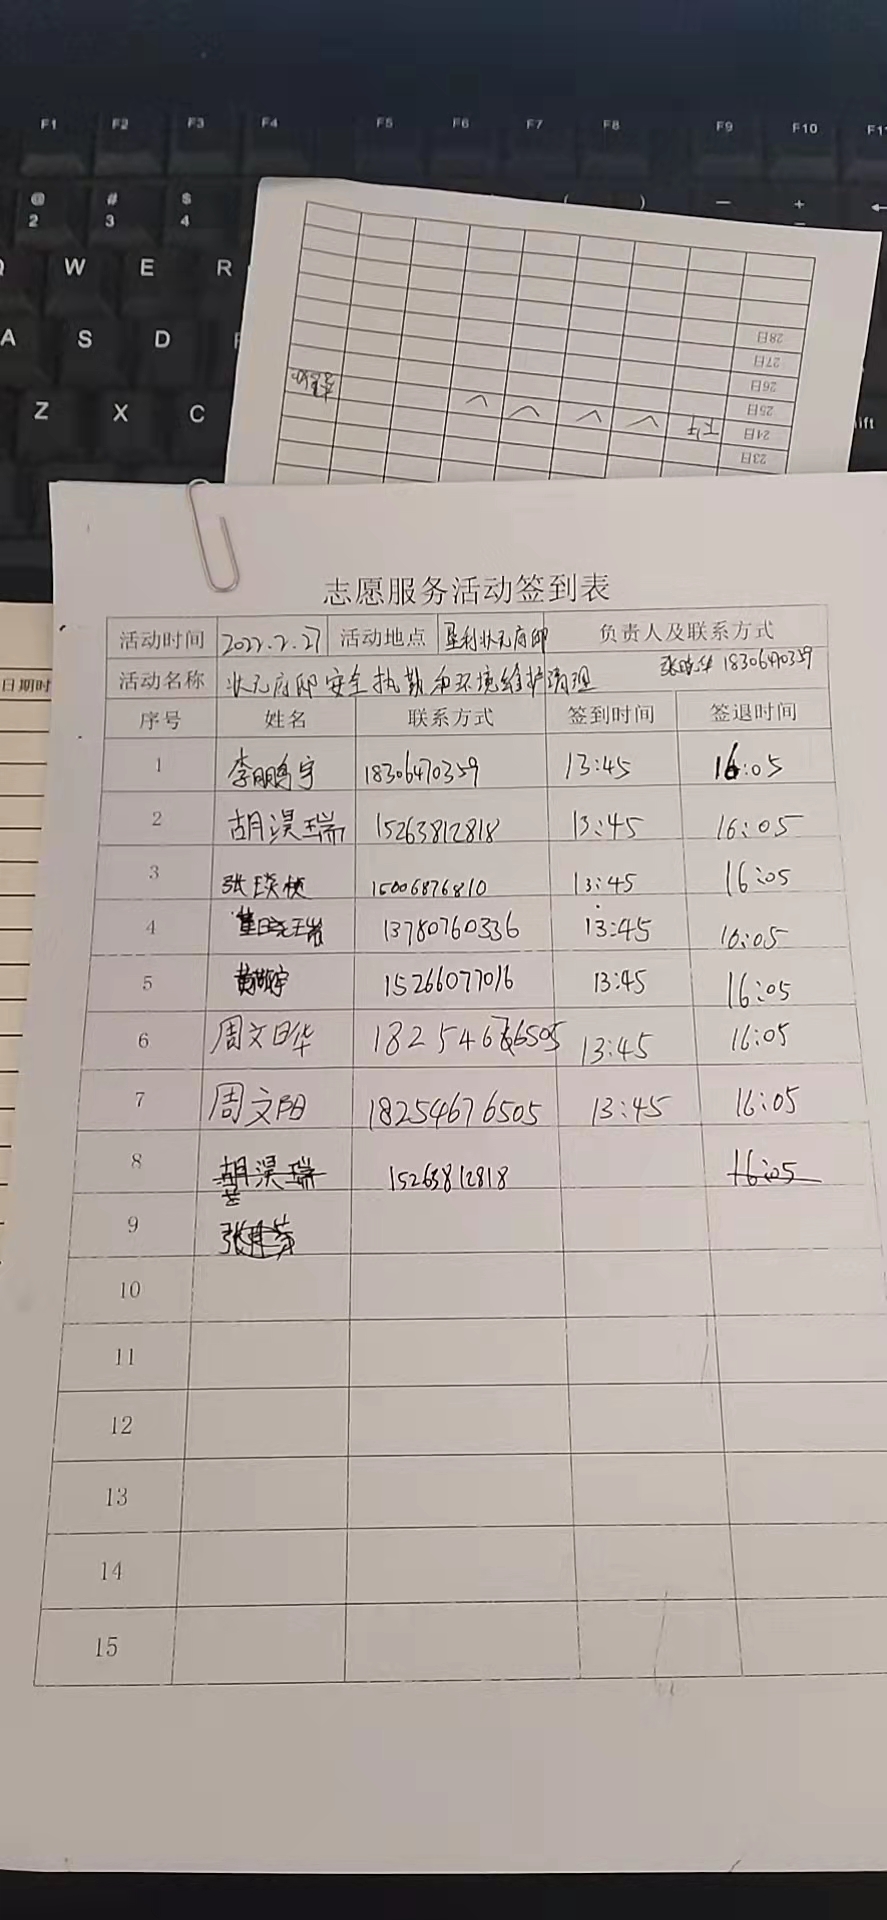 F1 F2 F3 F4 F5 F6 F7 F8 F9 F10 F11
@ # $ ( ) — +
2 3 4
W E R
A S D F
Z X C
28日
27日
26日
25日
24日
23日
日期时
志愿服务活动签到表
活动时间 2022.2.27 活动地点 垦利状元府邸 负责人及联系方式
活动名称 状元府邸安全执勤和环境维护清理 张晓华 18306470359
序号 姓名 联系方式 签到时间 签退时间
1 李鹏宇 18306470359 13:45 16:05
2 胡淏瑞 15263812818 13:45 16:05
3 张琰桢 15006876810 13:45 16:05
4 13780760336 13:45 16:05
5 15266077016 13:45 16:05
6 周文晔 18254676505 13:45 16:05
7 周文阳 18254676505 13:45 16:05
8 胡淏瑞 15263812818 16:05
9 张
10
11
12
13
14
15